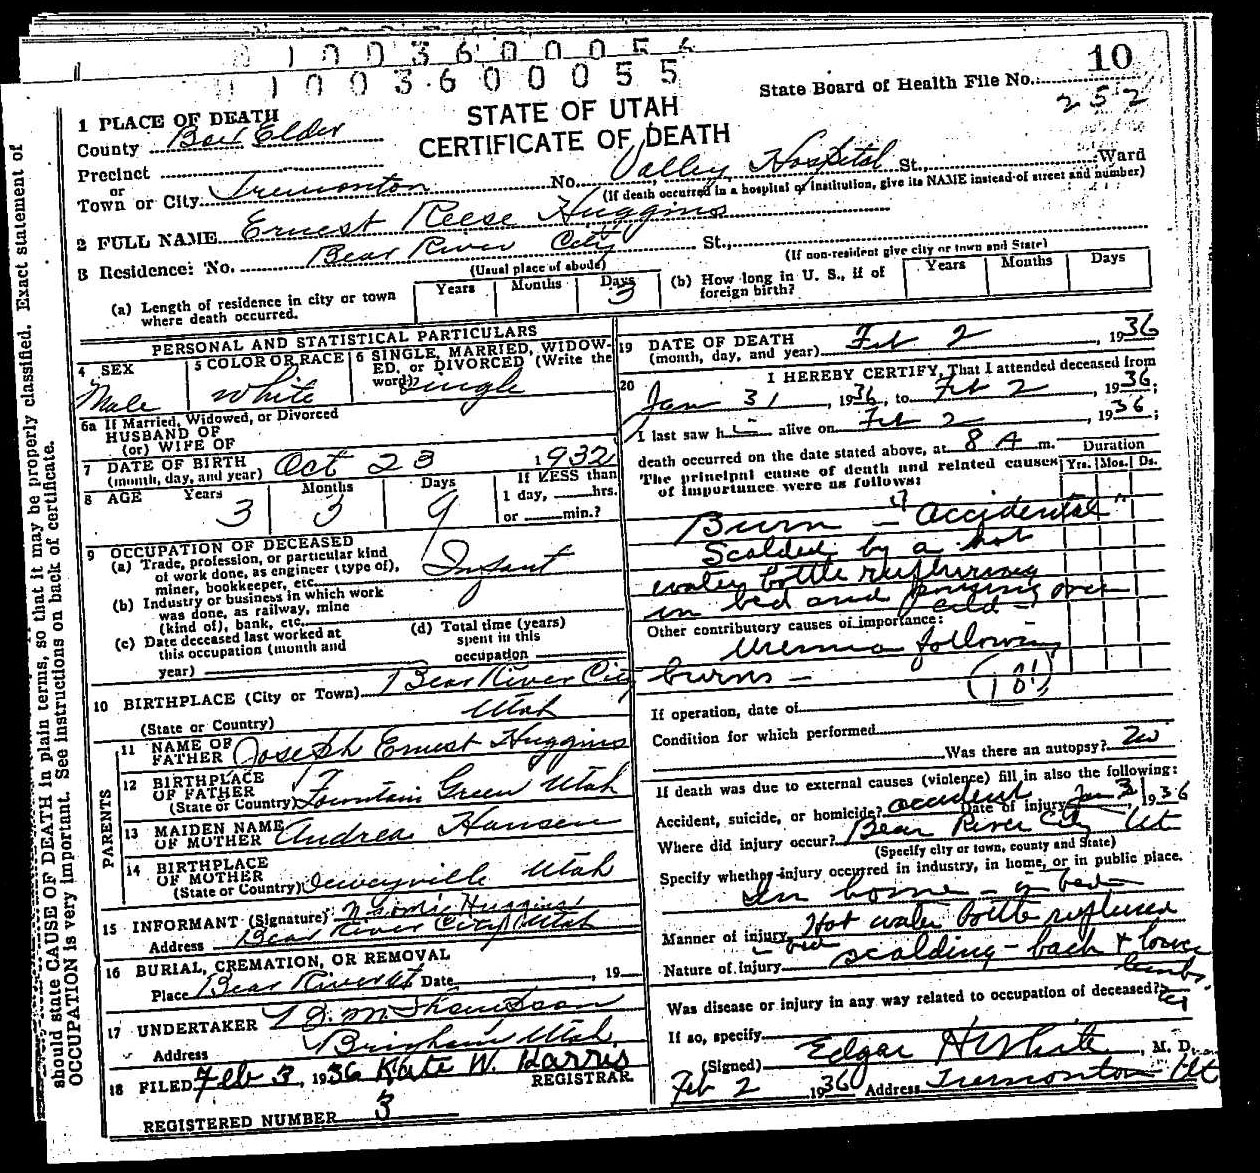 1003600056
1003600055
10
State Board of Health File No.
252
STATE OF UTAH
CERTIFICATE OF DEATH
1 PLACE OF DEATH
County Box Elder
Precinct
or
Town or City Tremonton No. Valley Hospital St., Ward
(If death occurred in a hospital or institution, give its NAME instead of street and number)
2 FULL NAME Ernest Reese Huggins
3 Residence: No. Bear River City St.,
(Usual place of abode) (If non-resident give city or town and State)
(a) Length of residence in city or town where death occurred. Years Months Days 3
(b) How long in U. S., if of foreign birth? Years Months Days
PERSONAL AND STATISTICAL PARTICULARS
4 SEX Male
5 COLOR OR RACE white
6 SINGLE, MARRIED, WIDOWED, or DIVORCED (Write the word) Single
6a If Married, Widowed, or Divorced
HUSBAND OF
(or) WIFE OF
7 DATE OF BIRTH (month, day, and year) Oct 23 1932
8 AGE Years 3 Months 3 Days 9
If LESS than 1 day, hrs. or min.?
9 OCCUPATION OF DECEASED
(a) Trade, profession, or particular kind of work done, as engineer (type of), miner, bookkeeper, etc. Infant
(b) Industry or business in which work was done, as railway, mine (kind of), bank, etc.
(c) Date deceased last worked at this occupation (month and year)
(d) Total time (years) spent in this occupation
10 BIRTHPLACE (City or Town) Bear River City
(State or Country) Utah
PARENTS
11 NAME OF FATHER Joseph Ernest Huggins
12 BIRTHPLACE OF FATHER (State or Country) Fountain Green Utah
13 MAIDEN NAME OF MOTHER Andrea Hansen
14 BIRTHPLACE OF MOTHER (State or Country) Deweyville Utah
15 INFORMANT (Signature) Naomi Huggins
Address Bear River City Utah
16 BURIAL, CREMATION, OR REMOVAL
Place Bear River Date , 19
17 UNDERTAKER
Address Brigham Utah
18 FILED Feb 3, 1936 Kate W. Harris
REGISTRAR
REGISTERED NUMBER 3
19 DATE OF DEATH (month, day, and year) Feb 2, 1936
20 I HEREBY CERTIFY, That I attended deceased from
Jan 31, 1936, to Feb 2, 1936;
I last saw h i alive on Feb 2, 1936;
death occurred on the date stated above, at 8 A m.
The principal cause of death and related causes of importance were as follows:
Duration
Yrs. Mos. Ds.
Burn - "Accidental"
Scalded by a hot
water bottle
in bed and over
Other contributory causes of importance:
Uremia following
burns -
(181)
If operation, date of
Condition for which performed
Was there an autopsy? No
If death was due to external causes (violence) fill in also the following:
Accident, suicide, or homicide? accident Date of injury Jan 31, 1936
Where did injury occur? Bear River City Ut
(Specify city or town, county and State)
Specify whether injury occurred in industry, in home, or in public place.
In home - in bed
Manner of injury Hot water bottle
Nature of injury scalding - back & lower limbs.
Was disease or injury in any way related to occupation of deceased?
If so, specify
(Signed) Edgar H White, M. D.
Feb 2 1936 Address Tremonton Ut
should state CAUSE OF DEATH in plain terms, so that it may be properly classified. Exact statement of
OCCUPATION is very important. See instructions on back of certificate.